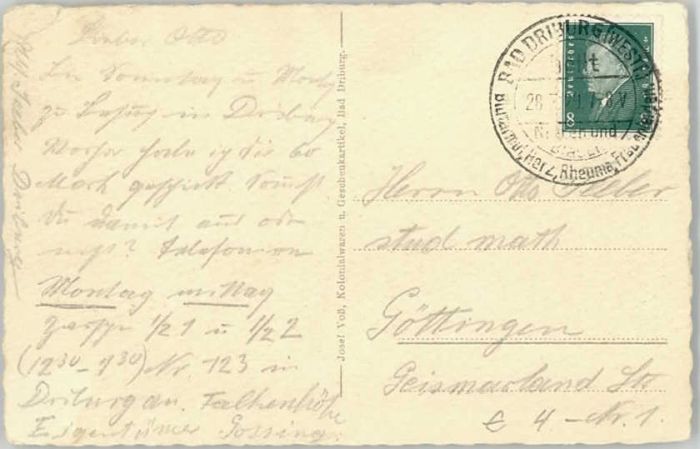 Lieber Otto
Bin Sonntag u Montag
zu Besuch in Driburg
Vorher habe ich die 60
Mark geschickt Kommst
Du damit aus oder
nicht? Telefoniere
Montag mittag
zwischen 1/2 1 u 1/2 2
(12 30 - 1 30) Nr. 123 in
Driburg an. Falkenhöhe
Eigentümer
Josef Voß, Kolonialwaren u. Geschenkartikel, Bad Driburg.
BAD DRIBURG (WESTF)
heilt
7-8 V
Nieren und
Blutarmut, Herz, Rheuma, Frauenleiden
8
Herrn Otto
stud math
Göttingen
Geismarland Str
4 - Nr. 1.